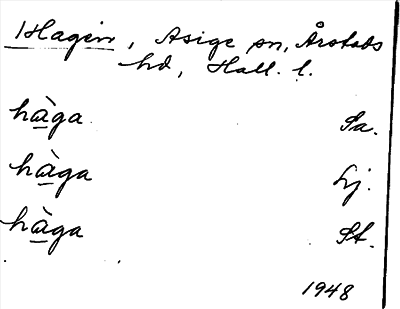 Hagen, Asige sn, Årstads
hd, Hall. l.
hàga Sa.
hàga Lj.
hàga St.
1948